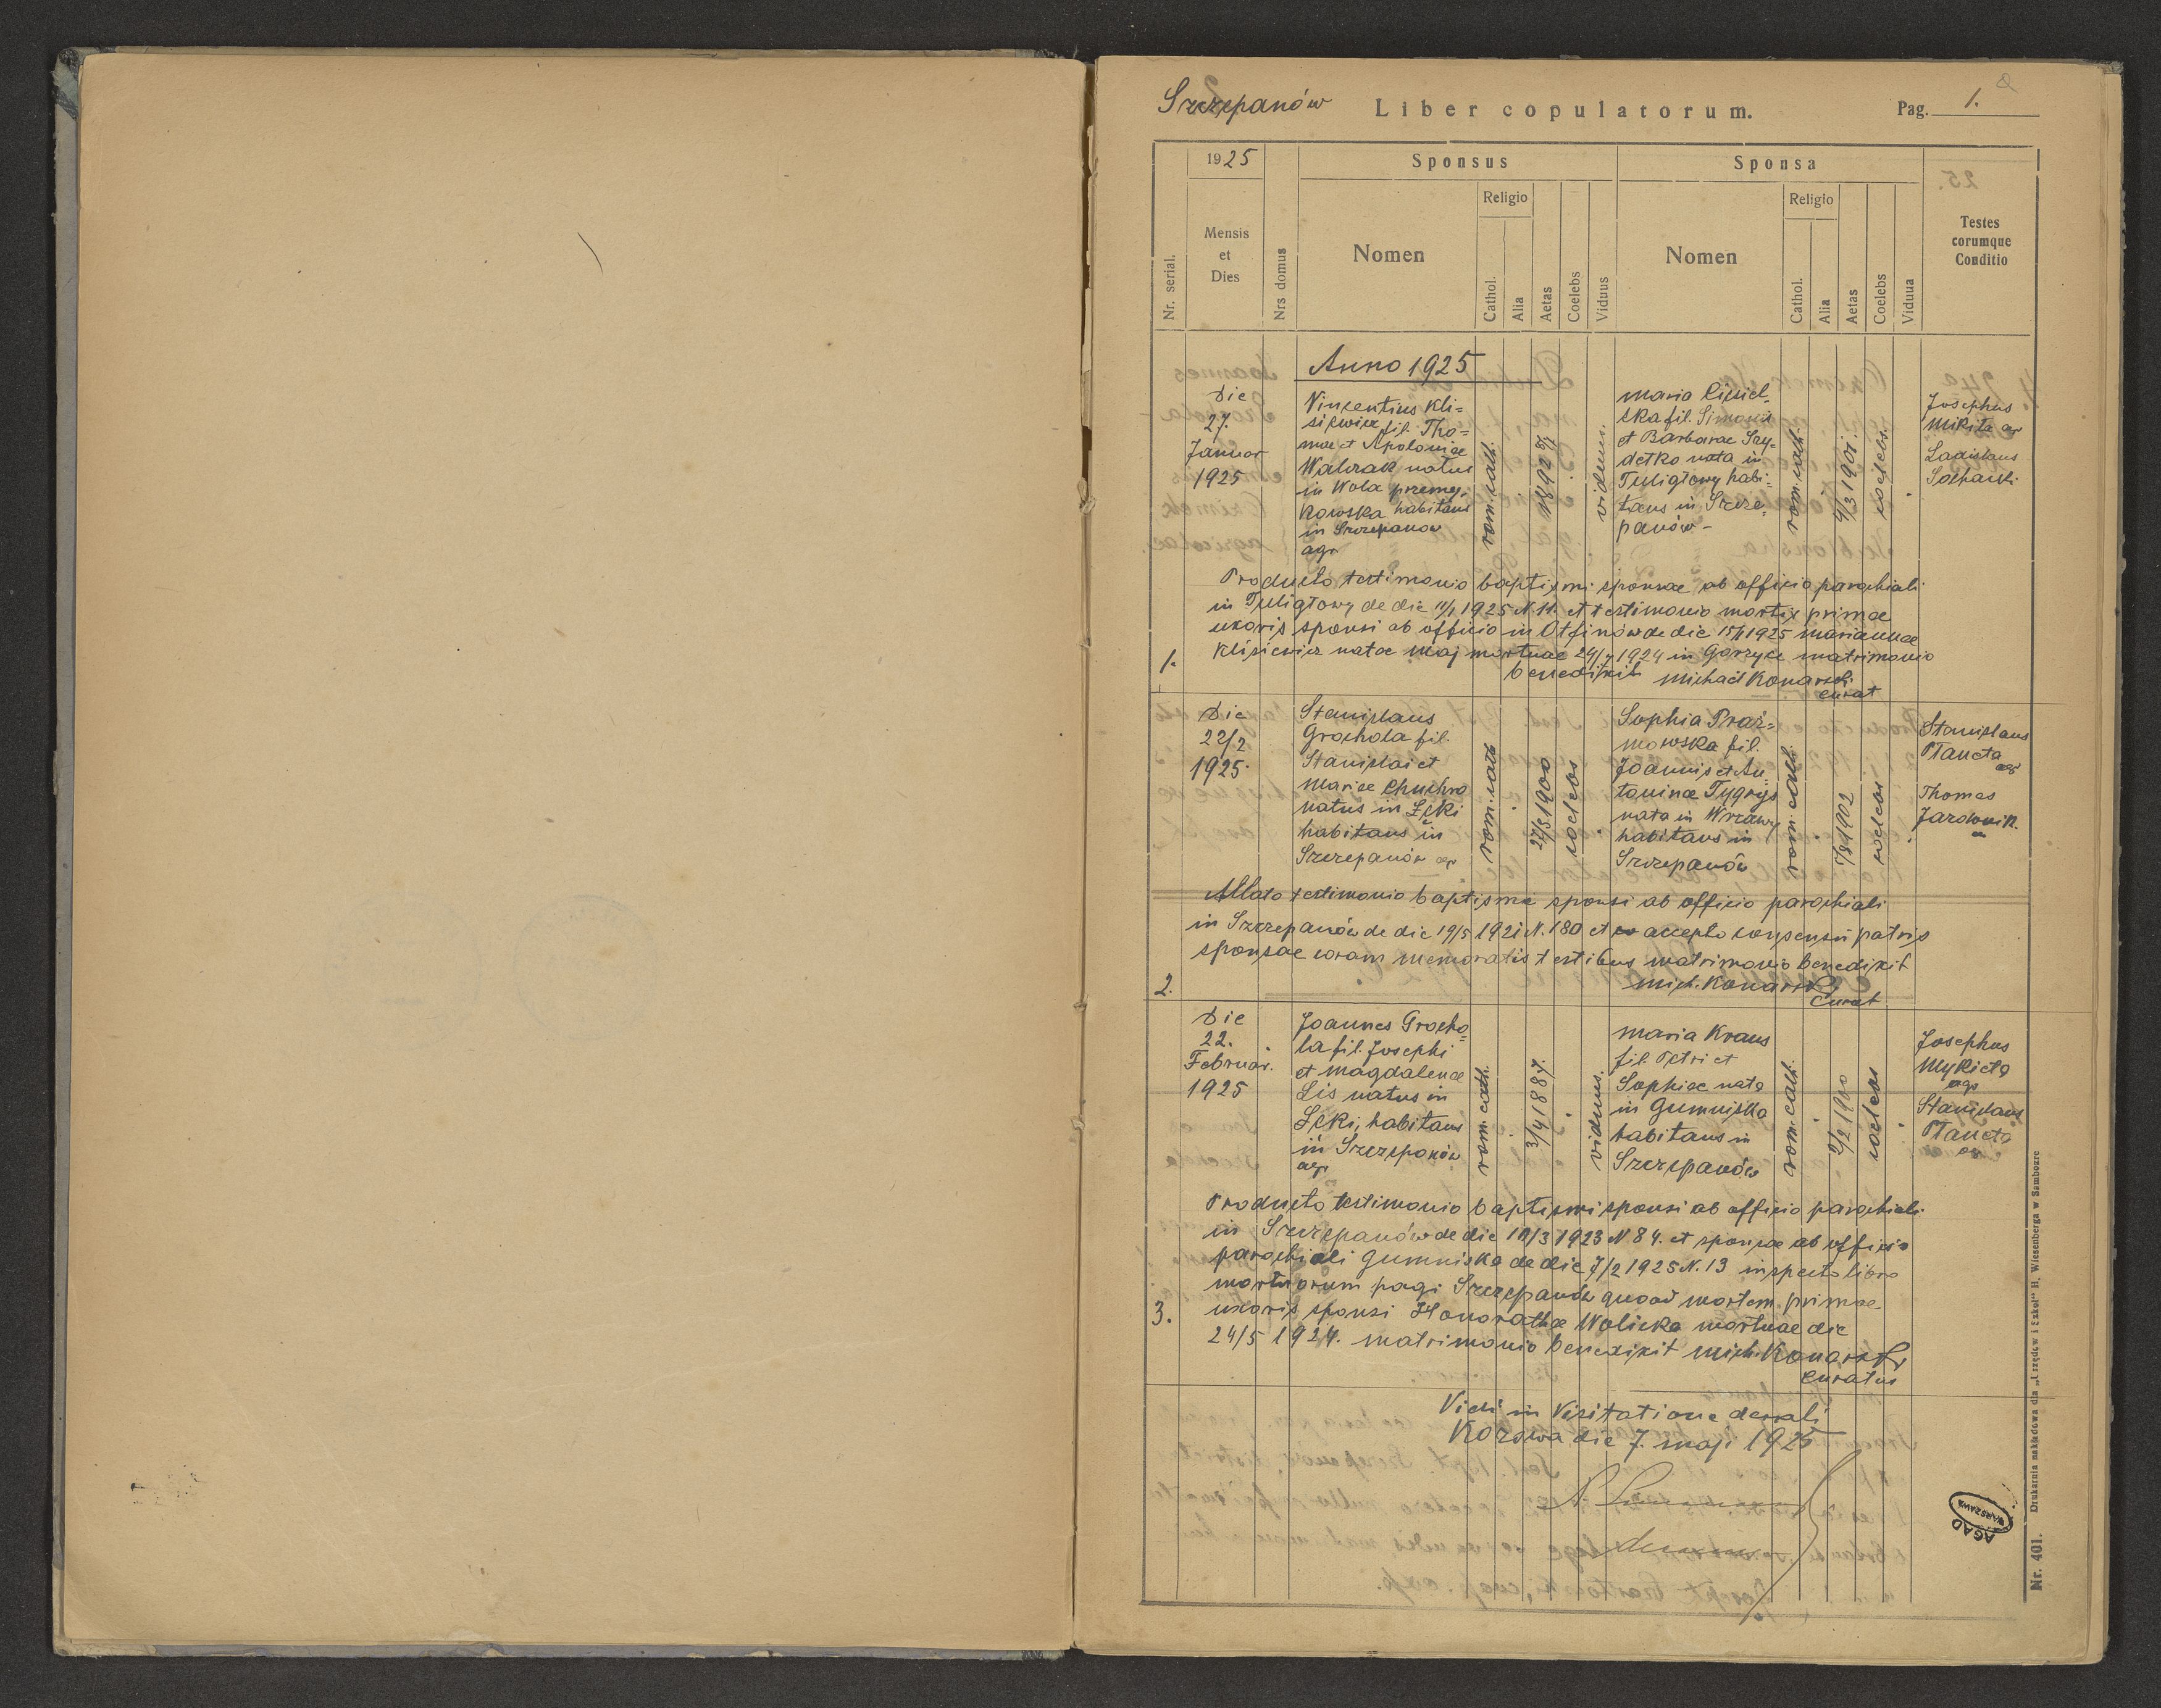 Szczepanów
Liber copulatorum.
Pag. 1.
1925
Mensis
et
Dies
Nr. serial.
Nrs domus
Sponsus
Nomen
Religio
Cathol.
Alia
Aetas
Coelebs
Viduus
Sponsa
Nomen
Religio
Cathol.
Alia
Aetas
Coelebs
Vidua
Testes
eorumque
Conditio
Anno 1925
Die
27.
Januar
1925
Vincentius Kli=
siewicz fil. Tho=
mae et Apoloniae
Walczak natus
in Wola przemy-
kowska habitans
in Szczepanow
agr.
rom. cath.
viduus.
Maria
et Barbarae Szy-
detko nata in
Tuligłowy habi-
tans in Szcze-
panów -
rom. cath.
4/3 1901.
coelebs.
Josephus
Mikita agr
Ladislaus
Producto testimonio baptismi sponsae ab officio parochiali
in Tuligłowy de die 11/1 1925 N. 11. et testimonio mortis primae
uxoris sponsi ab officio in Otfinów de die 15/1 1925 Mariannae
Klisiewicz natae Maj mortuae 24/7 1924 in Gorzyce matrimonio
1.
benedixit Michaël Konarski
curat
Die
22/2
1925.
Stanislaus
Grochola fil.
Stanislai et
Mariae Chuchro
natus in Łęki
habitans in
Szczepanów agr
rom. cath
27/3 1900
coelebs
Sophia Praż-
mowska fil.
Joannis et An-
toninae Tygrys
nata in Wrzawy
habitans in
Szczepanów
rom. cath.
1902
coelebs
Stanislaus
Płaneta
agr
Thomas
Allato testimonio baptismi sponsi ab officio parochiali
in Szczepanów de die 19/5 1921 N. 180 et accepto consensu patris
sponsae coram memoratis testibus matrimonio benedixit
2.
Mich. Konarski
Curat
Die
22.
Februar.
1925
Joannes Grocho-
la fil. Josephi
et Magdalenae
Lis natus in
Łęki, habitans
in Szczepanów
agr
rom. cath.
3/4 1887.
viduus.
Maria Kraus
fil. Petri et
Sophiae nata
in Gumniska
habitans in
Szczepanów
rom. cath.
2/2 1900
coelebs
Josephus
Mykieta
agr
Stanislaus
Płaneta
agr
Producto testimonio baptismi sponsi ab officio parochiali
in Szczepanów de die 10/3 1923 N 84. et sponsae ab officio
parochiali Gumniska de die 7/2 1925 N. 13 inspecto libro
mortuorum pagi Szczepanów quoad mortem primae
3.
uxoris sponsi Honorathae Wolicka mortuae die
24/5 1924. matrimonio benedixit Mich. Konarski
curatus
Vidi in Visitatione decanali
Kozowa die 7. maji 1925
AGAD
WARSZAWA
Nr. 401. Drukarnia nakładowa dla „Urzędów i Szkół" H. Wiesenberga w Samborze